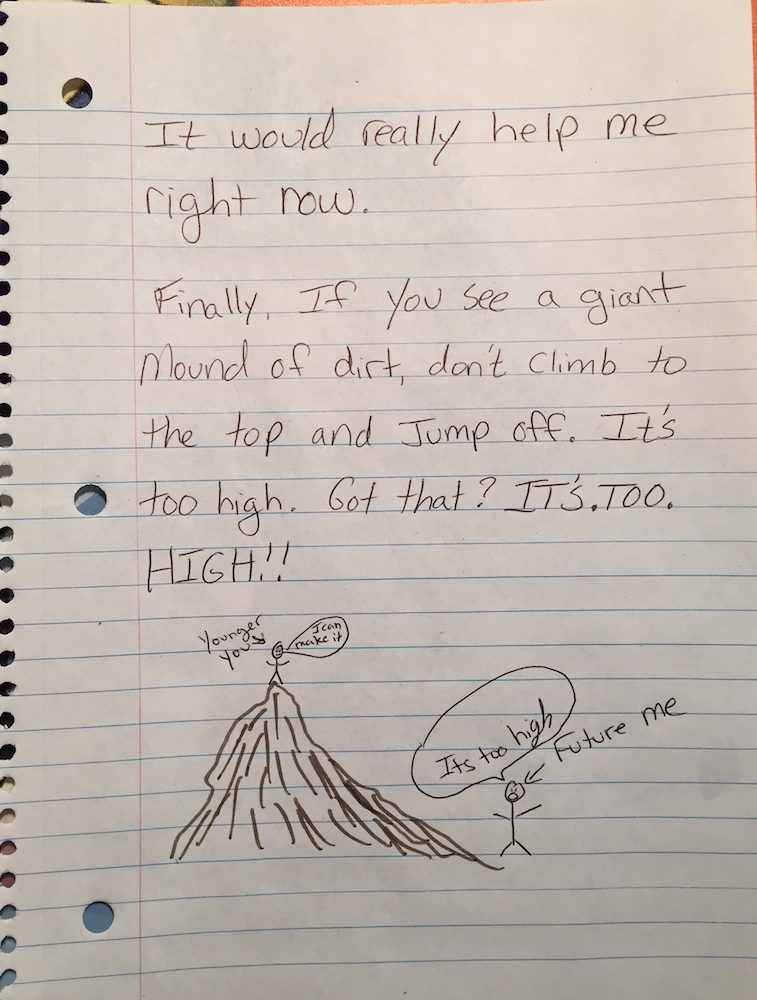 It would really help me
right now.
Finally, If you see a giant
Mound of dirt, don't climb to
the top and Jump off. It's
too high. Got that? IT'S.TOO.
HIGH!!
Younger
you
I can
make it
Its too high
Future me